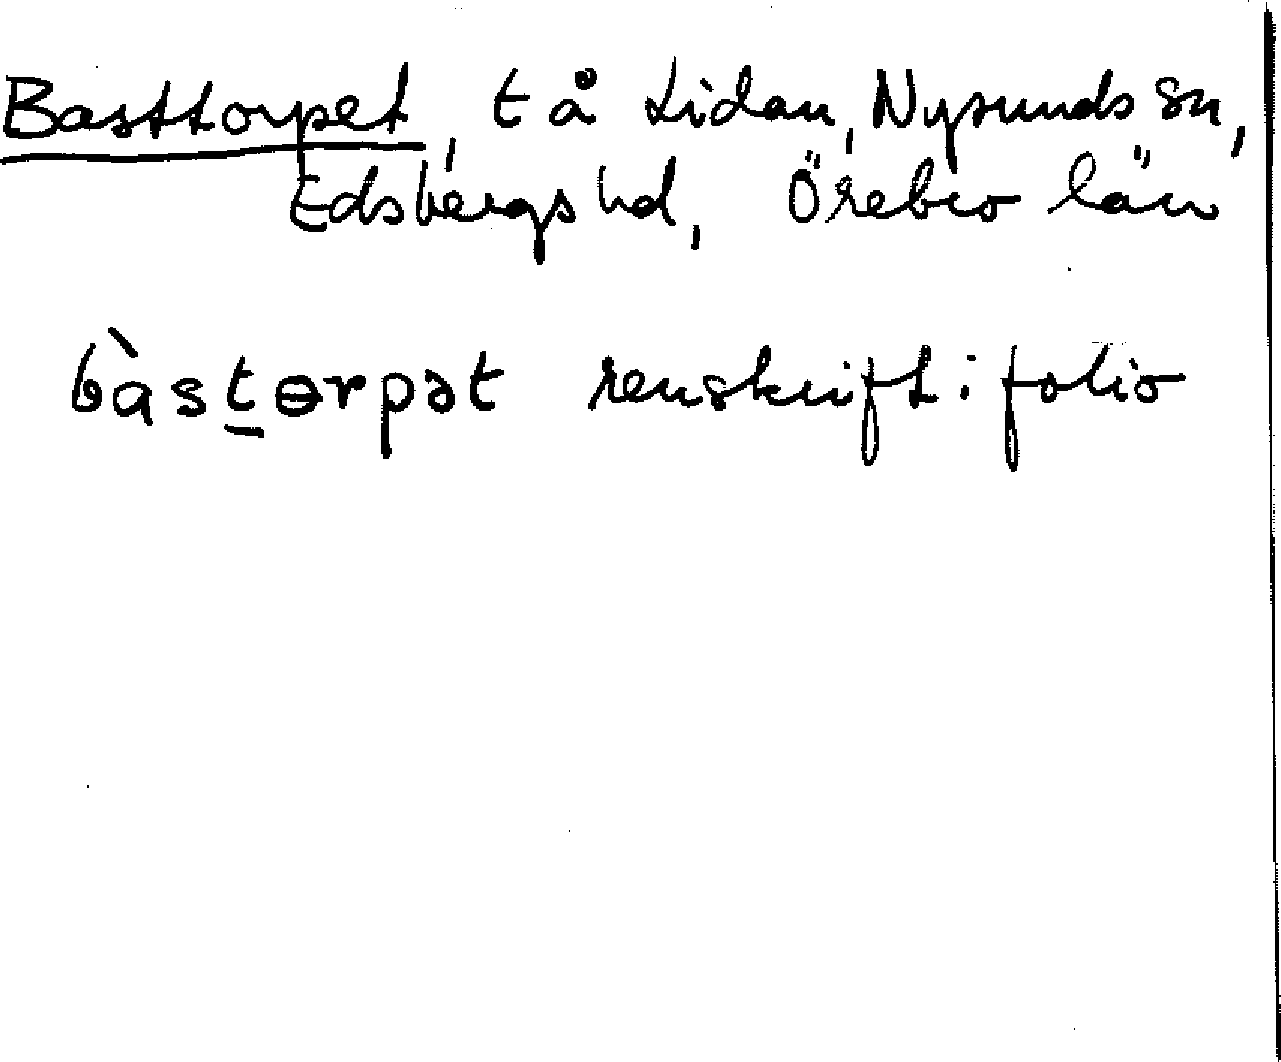 Basttorpet, t å Lidan, Nysunds sn,
Edsbergs hd, Örebro län
bàst̲ɵrpət renskrift i folio